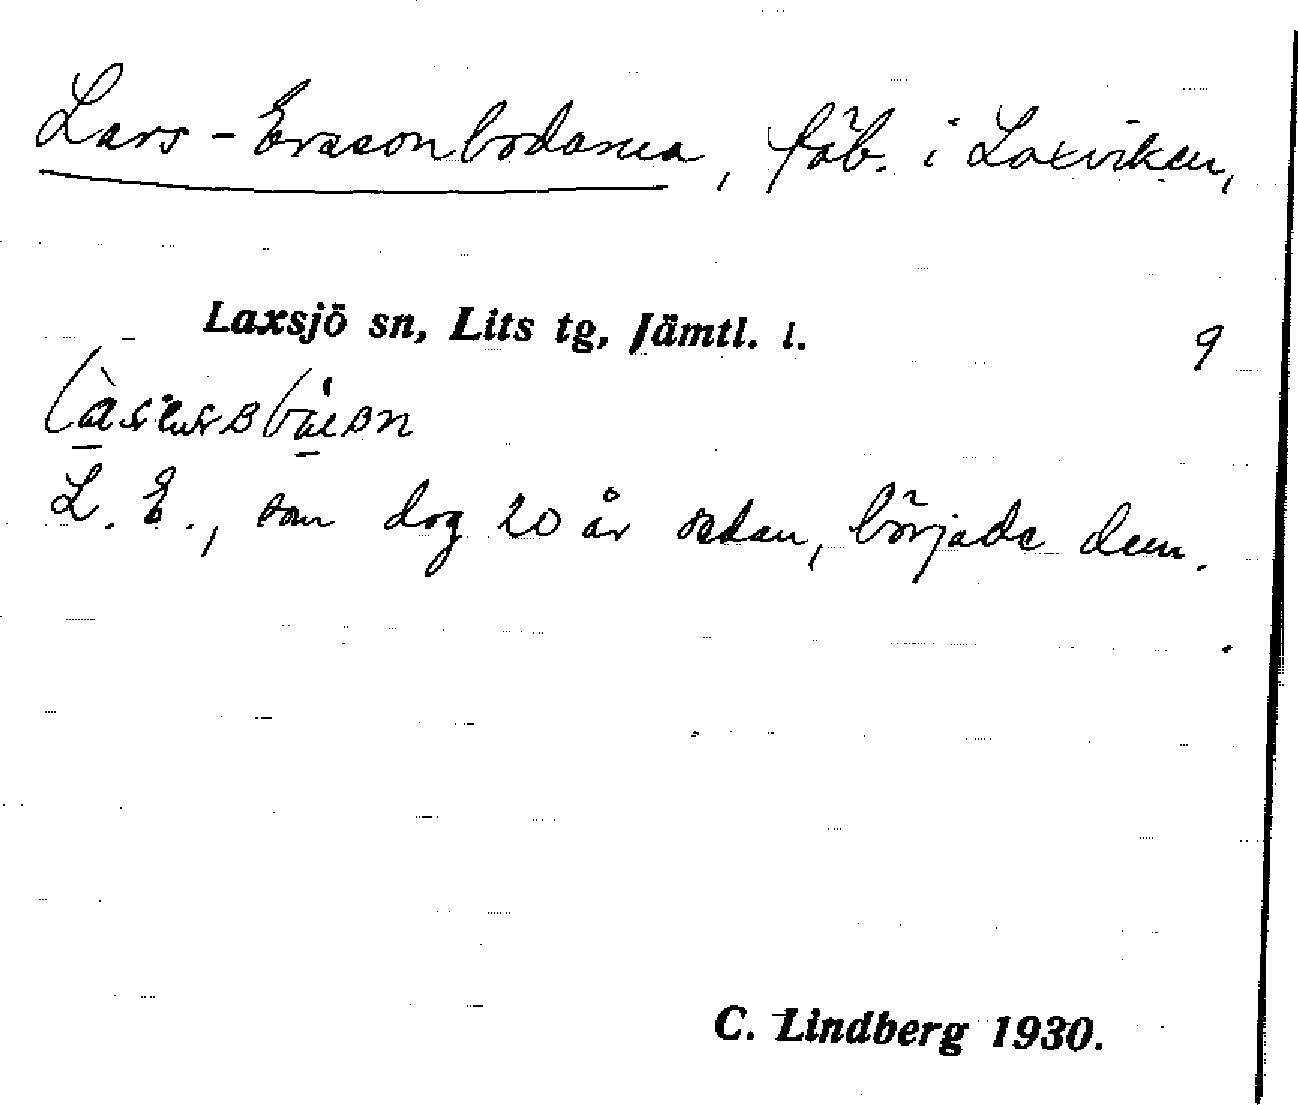 Lars-Ersson bodarna, fäb. i Laxviken,
Laxsjö sn, Lits tg, Jämtl. l.
9
L. E., som dog 20 år sedan, började dem.
C. Lindberg 1930.